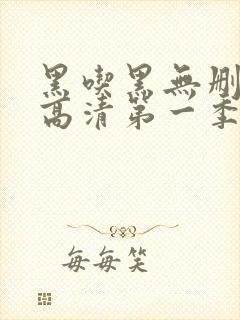 黑喫黑無刪
高清第一季
每每笑